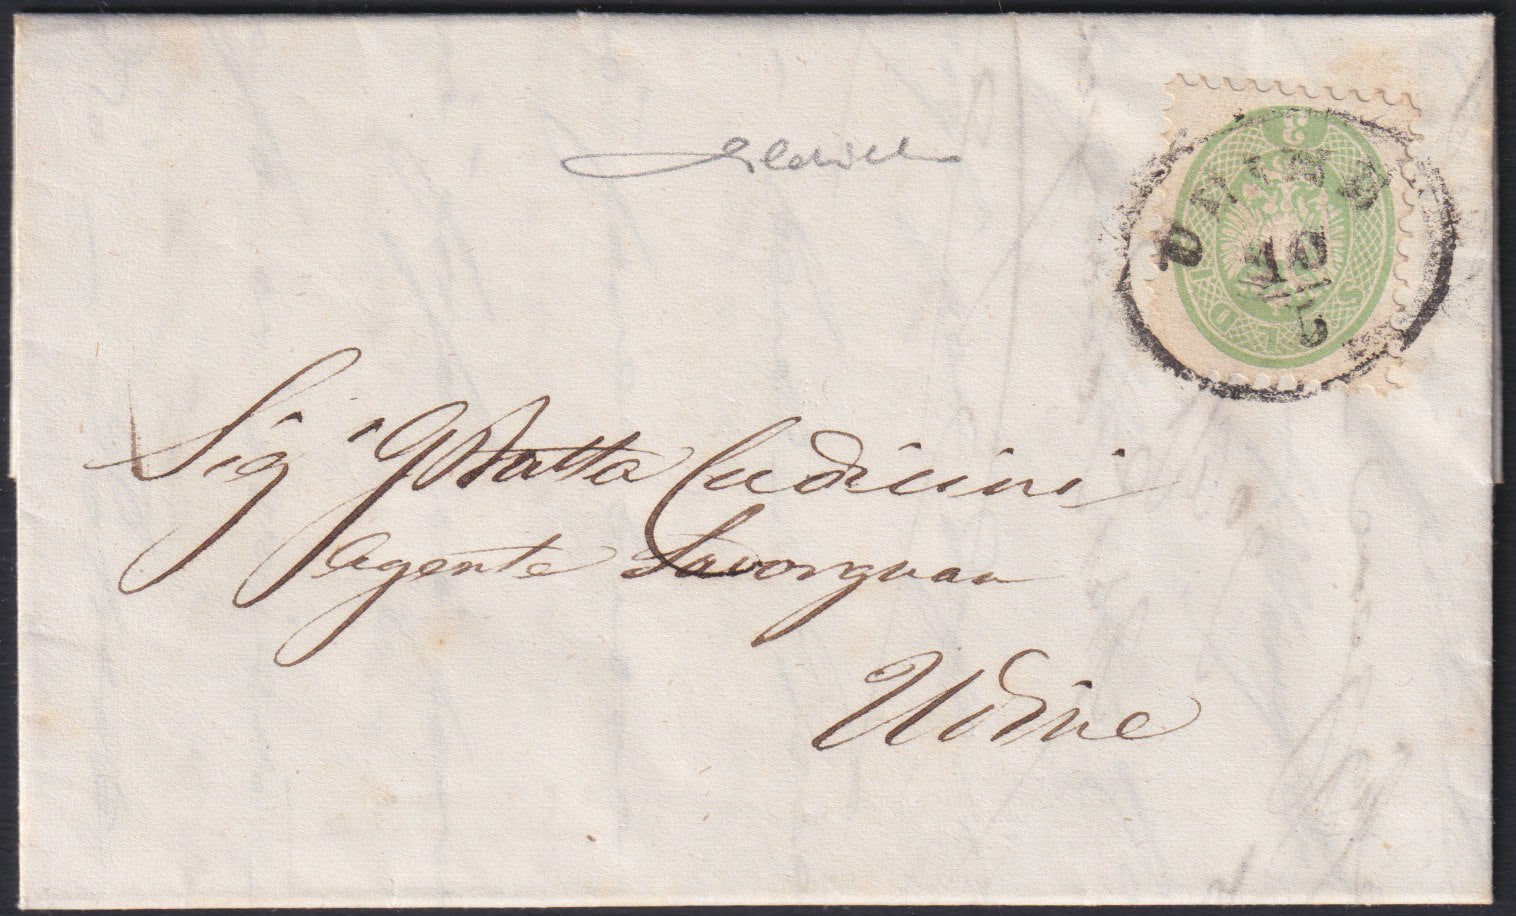 3
SOLDI
UDINE
10
5
Sig.r GBatta Cudicini
Agente Savorgnan
Udine